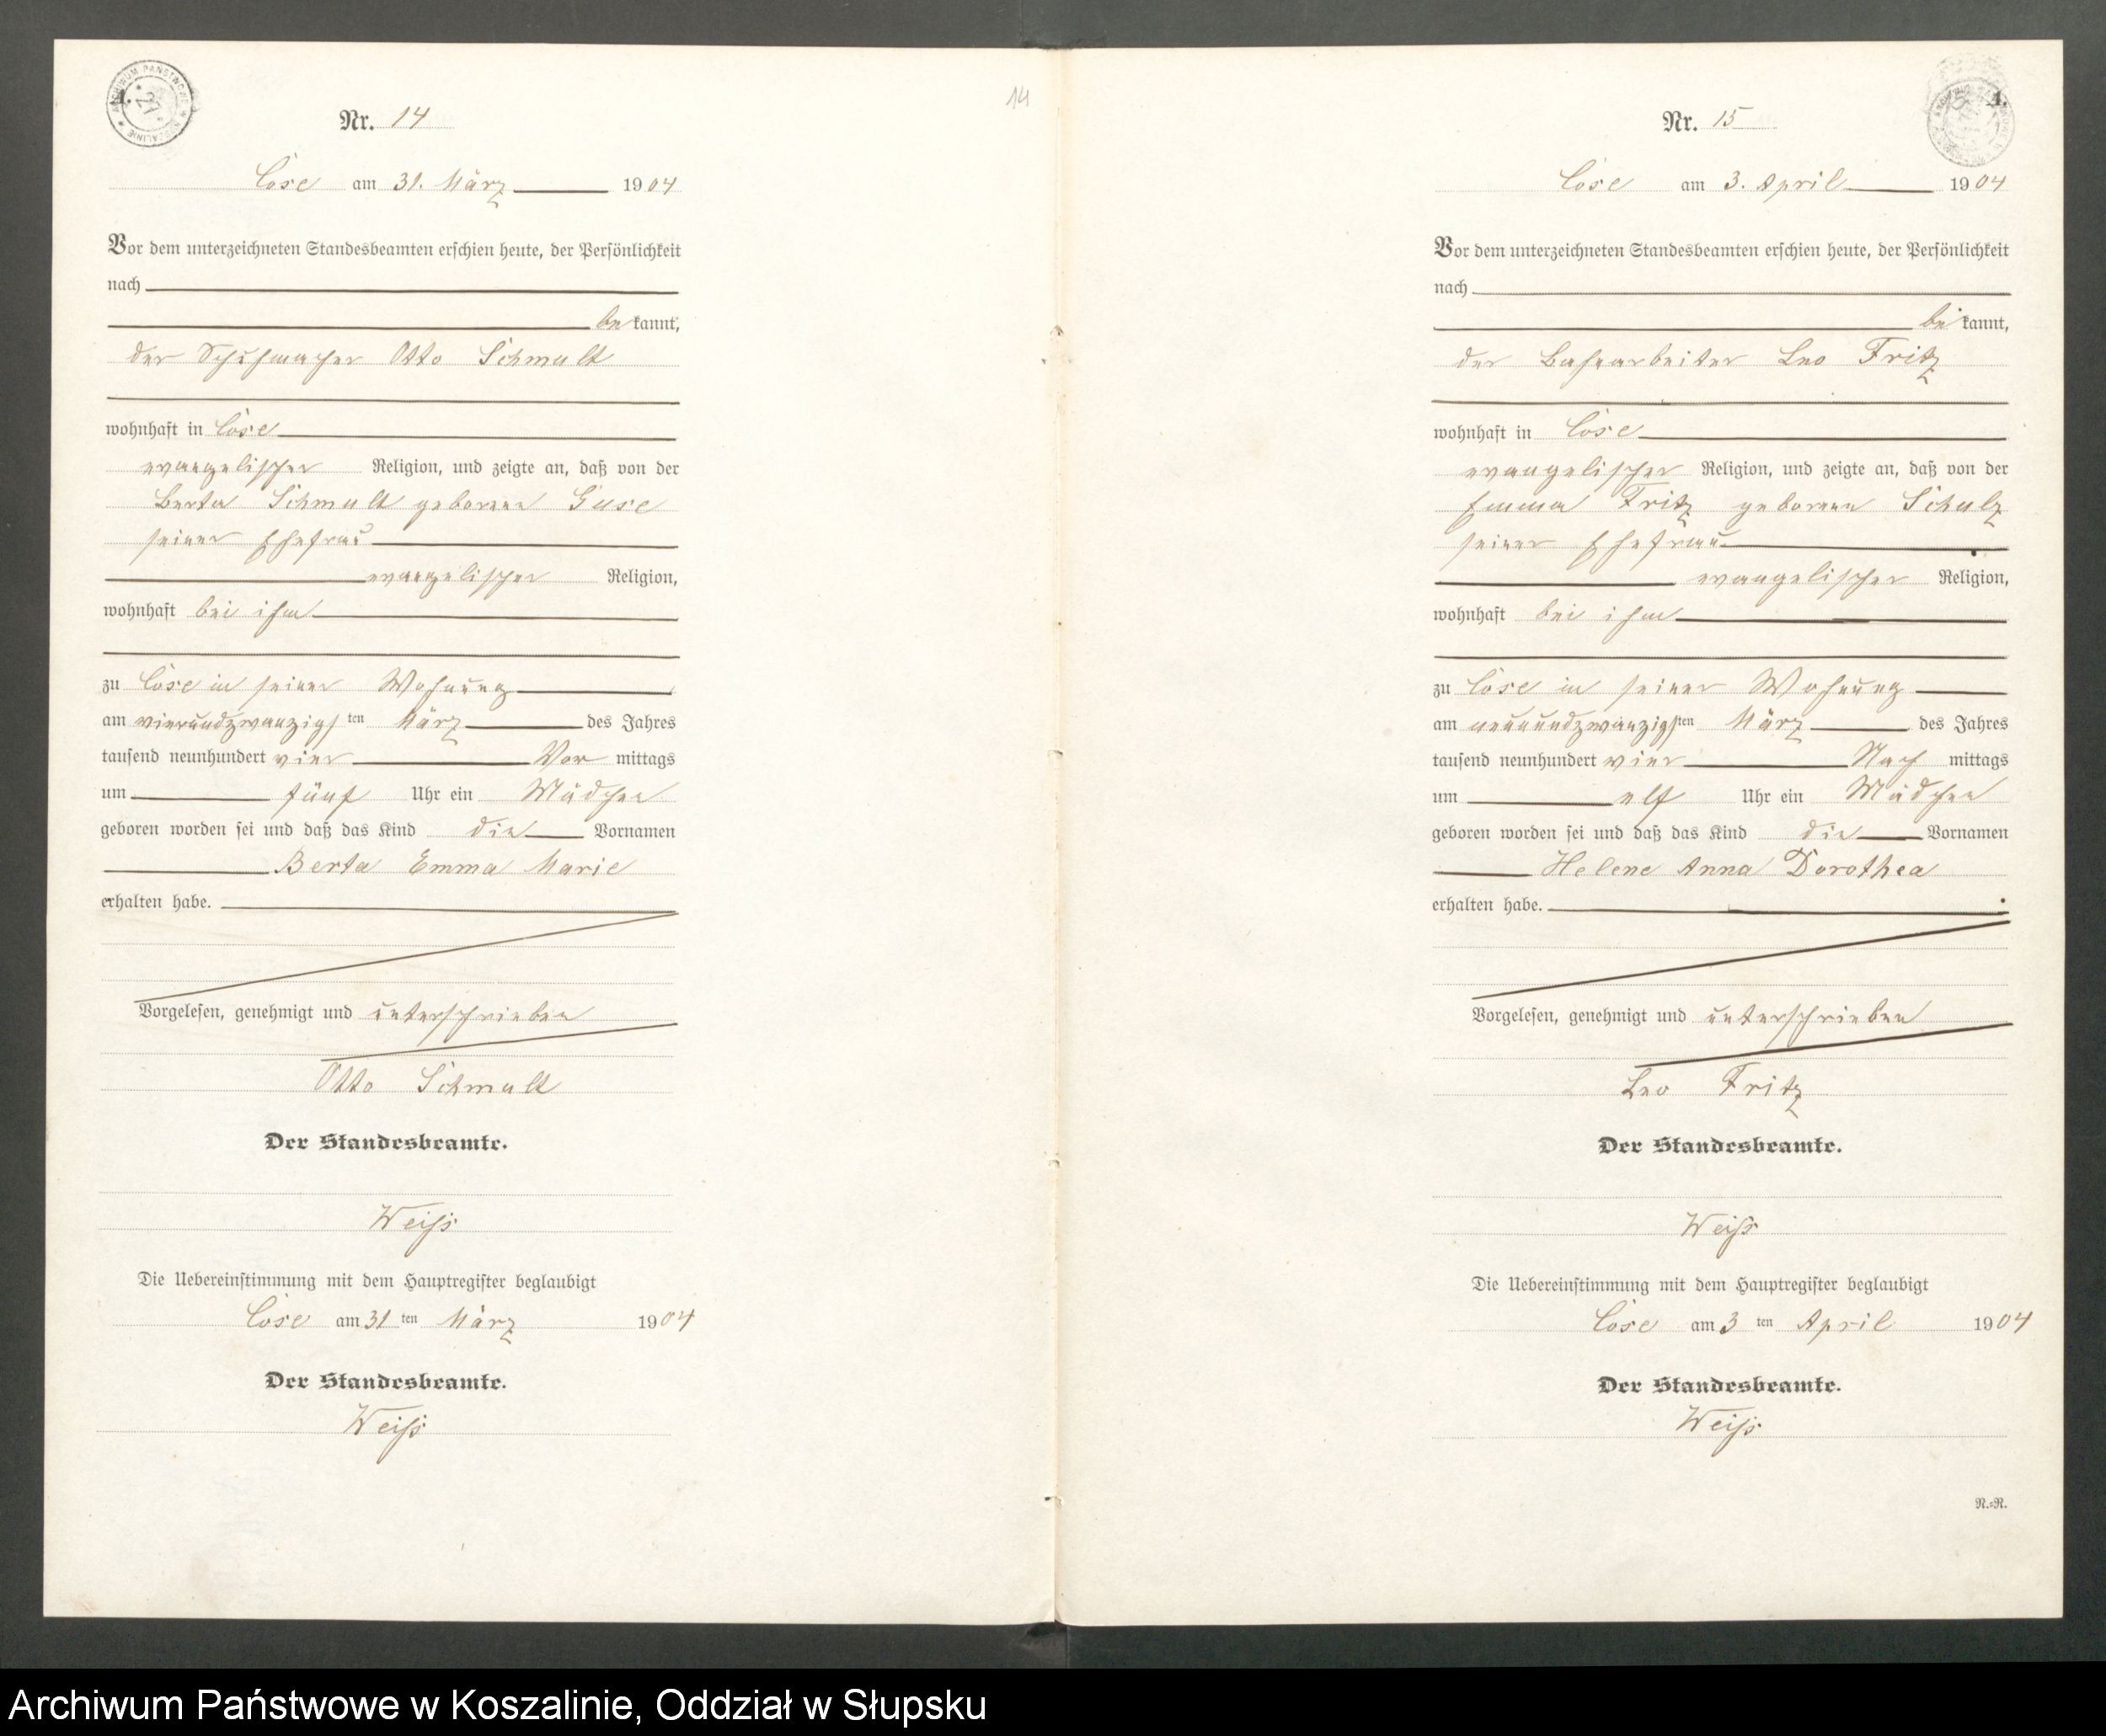 Nr. 14
Cöse am 31. März 1904
Vor dem unterzeichneten Standesbeamten erschien heute, der Persönlichkeit
nach
be kannt,
der Schuhmacher Otto Schmalt
wohnhaft in Cöse
evangelischer Religion, und zeigte an, daß von der
Berta Schmalt geborene Guse
seiner Ehefrau
evangelischer Religion,
wohnhaft bei ihm
zu Cöse in seiner Wohnung
am vierundzwanzigsten März des Jahres
tausend neunhundert vier Vor mittags
um fünf Uhr ein Mädchen
geboren worden sei und daß das Kind die Vornamen
Berta Emma Marie
erhalten habe.
Vorgelesen, genehmigt und unterschrieben
Otto Schmalt
Der Standesbeamte.
Weiß
Die Uebereinstimmung mit dem Hauptregister beglaubigt
Cöse am 31 ten März 1904
Der Standesbeamte.
Weiß
14
Nr. 15
Cöse am 3. April 1904
Vor dem unterzeichneten Standesbeamten erschien heute, der Persönlichkeit
nach
be kannt,
der Bahnarbeiter Leo Fritz
wohnhaft in Cöse
evangelischer Religion, und zeigte an, daß von der
Emma Fritz geborene Schulz
seiner Ehefrau
evangelischer Religion,
wohnhaft bei ihm
zu Cöse in seiner Wohnung
am neunundzwanzigsten März des Jahres
tausend neunhundert vier Nach mittags
um elf Uhr ein Mädchen
geboren worden sei und daß das Kind die Vornamen
Helene Anna Dorothea
erhalten habe.
Vorgelesen, genehmigt und unterschrieben
Leo Fritz
Der Standesbeamte.
Weiß
Die Uebereinstimmung mit dem Hauptregister beglaubigt
Cöse am 3 ten April 1904
Der Standesbeamte.
Weiß
N.=R.
Archiwum Państwowe w Koszalinie, Oddział w Słupsku